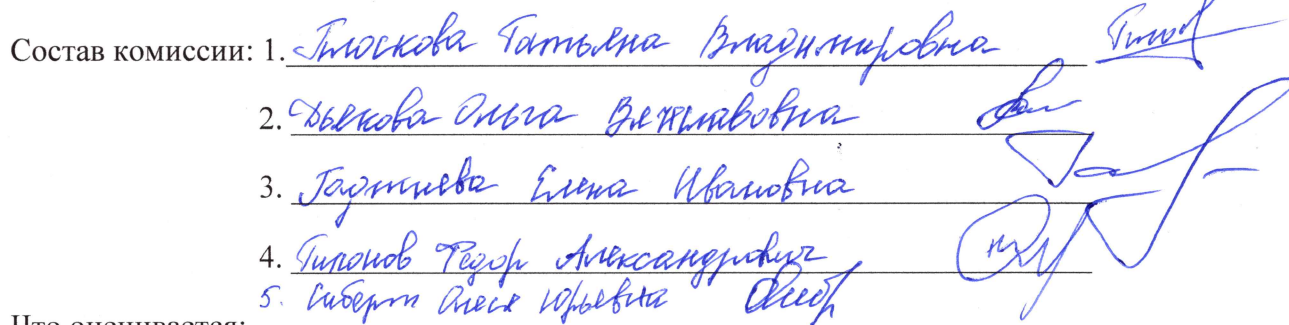 Состав комиссии: 1. Плоскова Татьяна Владимировна
2. Дьякова Ольга Вячеславовна
3. Гаджиева Елена Ивановна
4. Федор Александрович
5. Сиберт Олеся Юрьевна
Что оценивается: